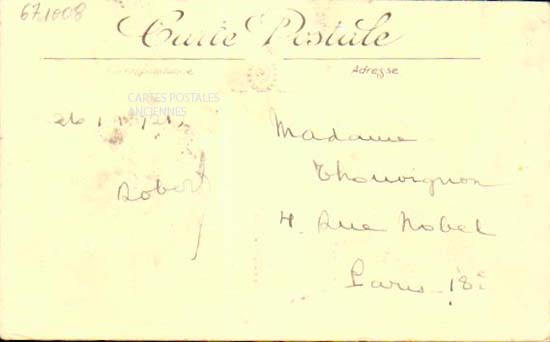 671008
Carte Postale
Correspondance
Adresse
CARTES POSTALES
ANCIENNES
Robert
Madame
Thouvignon
4 Rue Nobel
Paris - 18e